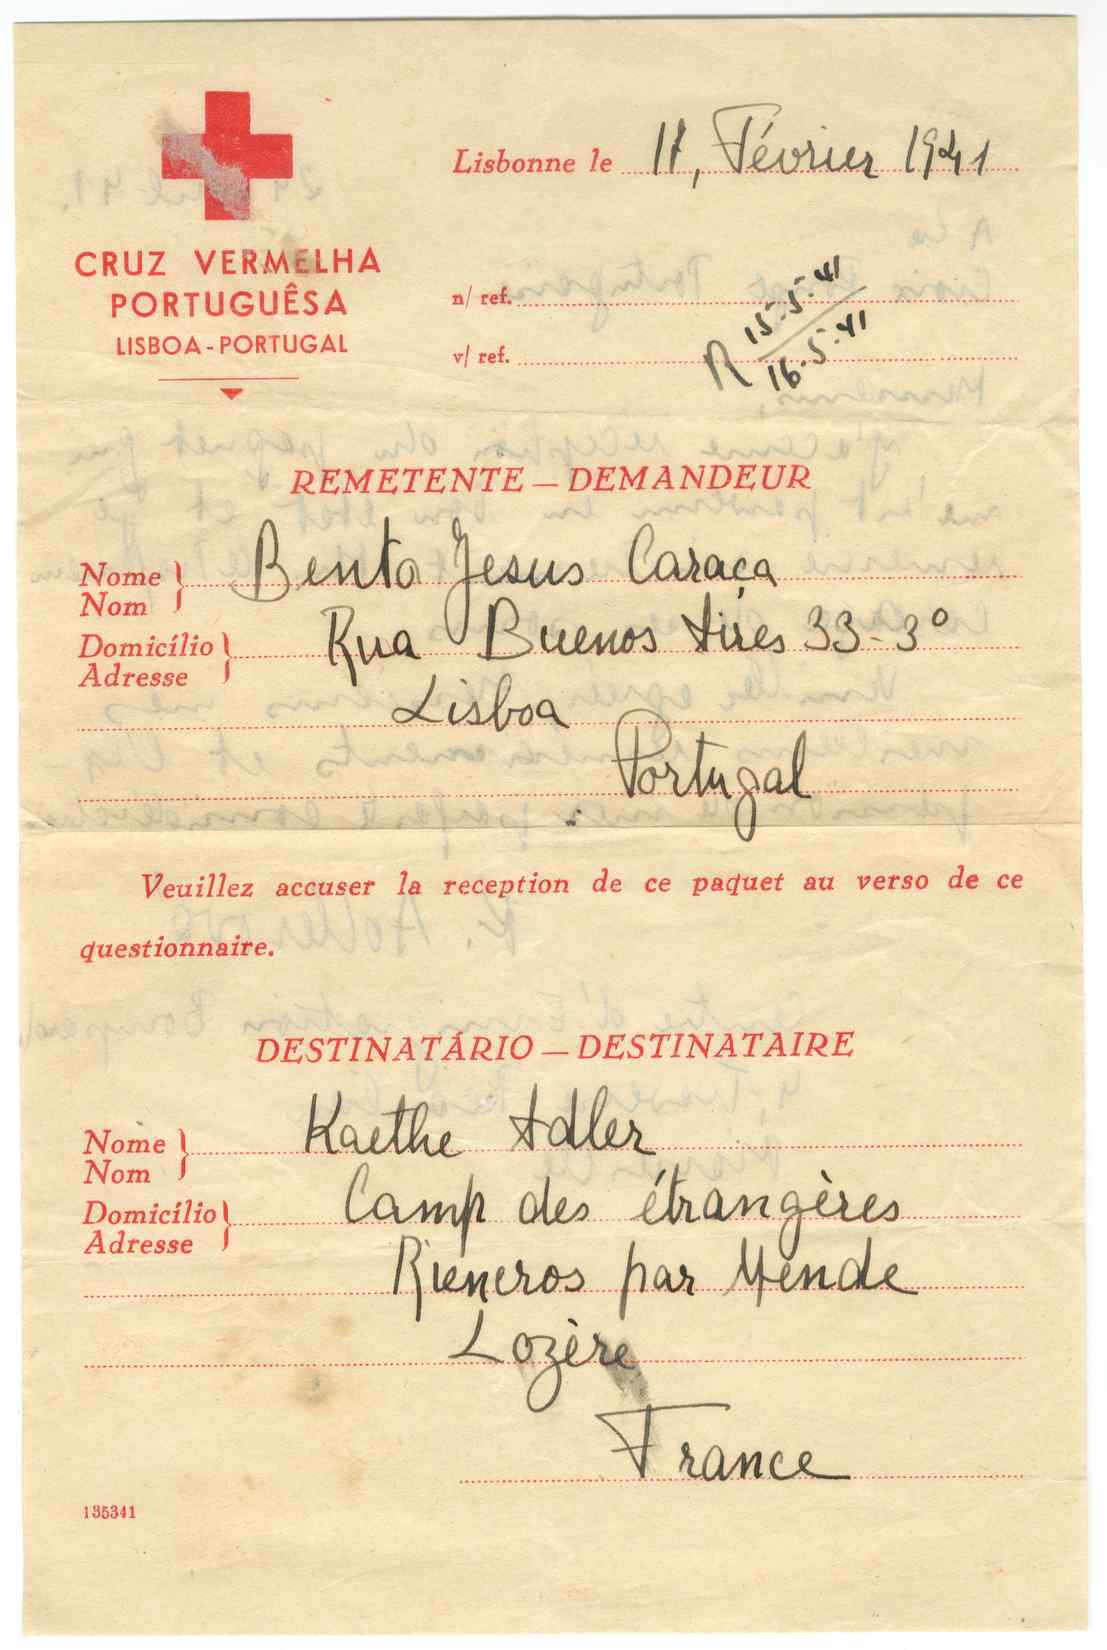 CRUZ VERMELHA
PORTUGUÊSA
LISBOA - PORTUGAL
Lisbonne le 17, Février 1941
n/ ref.
v/ ref.
R 15-5-41
16.5.41
REMETENTE — DEMANDEUR
Nome
Nom
Bento Jesus Caraça
Domicílio
Adresse
Rua Buenos Aires 33-3º
Lisboa
Portugal
Veuillez accuser la reception de ce paquet au verso de ce
questionnaire.
DESTINATÁRIO — DESTINATAIRE
Nome
Nom
Kaethe Adler
Domicílio
Adresse
Camp des étrangères
Rieneros par Mende
Lozère
France
135341